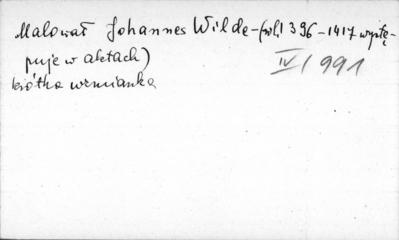 Malował Johannes Wilde-(wl. 1396-1417 wystę-
puje w aktach)
krótka wzmianka
IV/991